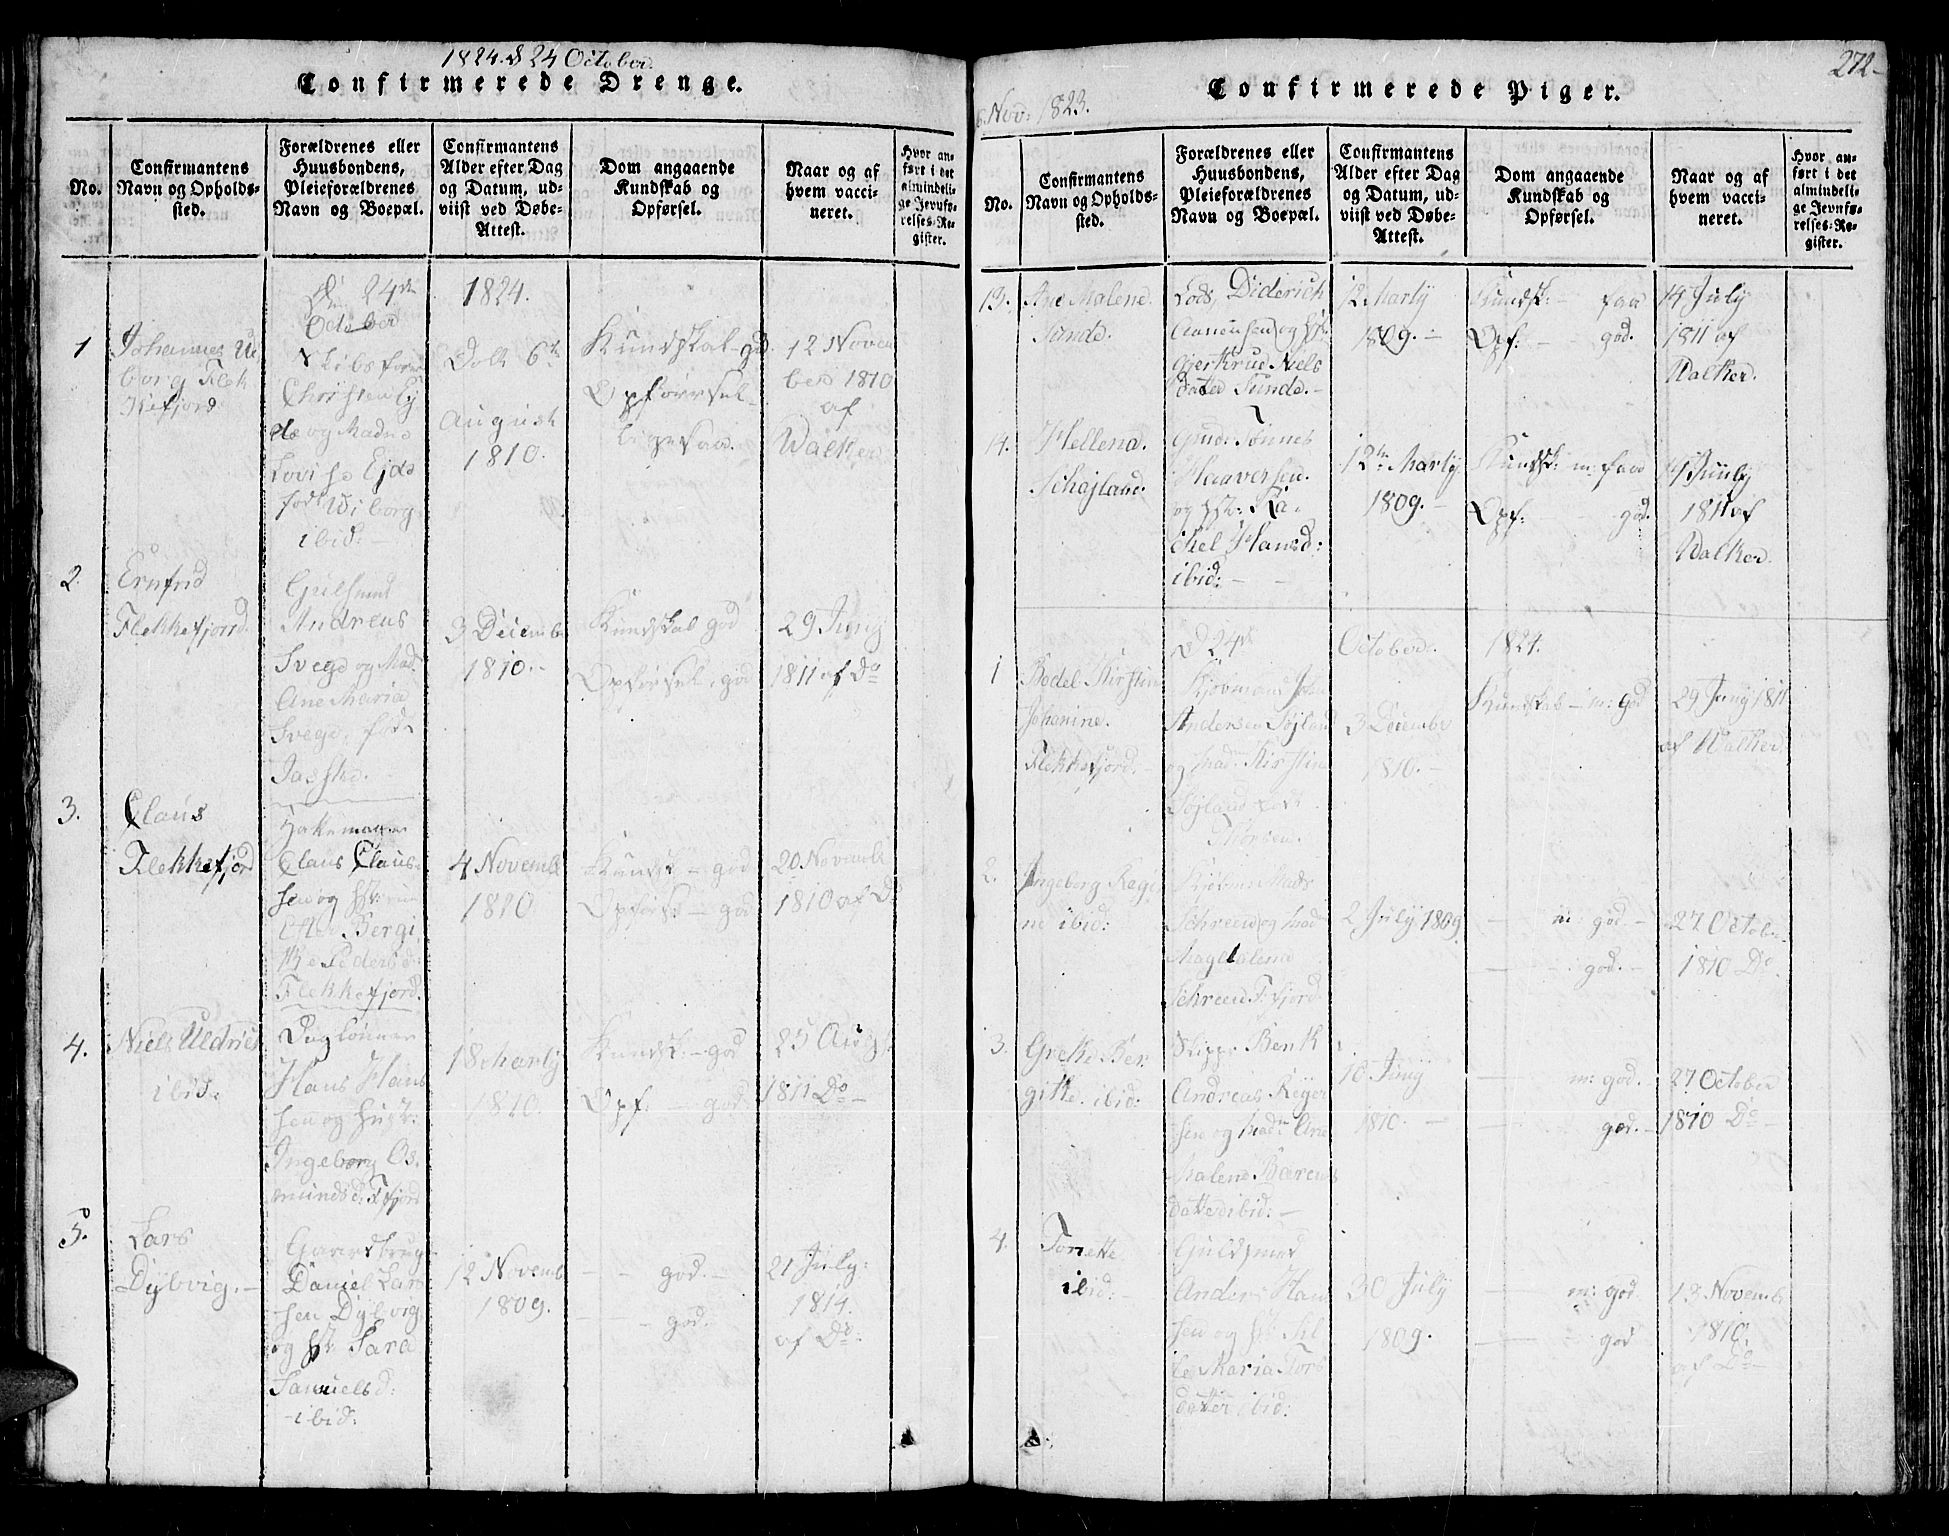 1824. d 24 October.
Confirmerede Drenge.
No.
Confirmantens
Navn og Opholds-
sted.
Forældrenes eller
Huusbondens,
Pleieforældrenes
Navn og Boepæl.
Confirmantens
Alder efter Dag
og Datum, ud-
viist ved Døbe-
Attest.
Dom angaaende
Kundskab og
Opførsel.
Naar og af
hvem vacci-
neret.
Hvor an-
ført i det
almindeli-
ge Jevnfø-
relses-Re-
gister.
24de
October
1824.
1
Johannes
borg Flek
kefjord
Christen Ey
de og Madme
Lovise Ejde
født Wiborg
ibid:
6te
August
1810.
Kundskab - gd.
Opførrsel
ligesaa.
12 Novem
ber 1810
af
Walker
2.
Ernfrid
Flekkefjord.
Gulsmed
Andreas
Svege og Mad:
Ane Maria
Svege, fød
Jasske.
3 Decembr
1810.-
Kundskab god
Opførsel, god
29 Juny
1811 af Do
3.
Claus
Flekkefjord
Claus Claus-
sen og
Bergi
the Pedersd:
Flekkefjord.
4 Novembr
1810
Kundsk - god
Opførs - god
20 Novembr
1810 af D
4.
Niels Uldrich
ibid:
Daglønner
Hans Hans
sen og Hust:
Ingeborg Os.
mundsd: F fjord
18 Marty
1810
Kundsk: - god
Opf: - god.
25 Aug
1811 Do -
5.
Lars
Dybvig. -
Gaardbrug
Daniel Lar
sen Dybvig
og Hst Sara
Samuelsd:
- ibid:
12 Novemb
1809.
- - god. -
- - god.
21 July:
1814.
af Do
272-
Confirmerede Piger.
6. Nov: 1823.
No.
Confirmantens
Navn og Opholds-
sted.
Forældrenes eller
Huusbondens,
Pleieforældrenes
Navn og Boepæl.
Confirmantens
Alder efter Dag
og Datum, ud-
viist ved Døbe-
Attest.
Dom angaaende
Kundskab og
Opførsel.
Naar og af
hvem vacci-
neret.
Hvor an-
ført i det
almindeli-
ge Jevnfø-
relses-Re-
gister.
13.
Ane Malene
Sunde.
Lods, Diderich
Aanensen og Hst:
Gjertrud Niels
datter Sunde. -
12 Marty
1809. -
Kundsk: - faa
Opf: - god.
14 July
1811 af
Walker.
14.
Hellena.
Schajland.
Gmd: Tønnes
Haaversen.
og Hst: Ra-
chel Hansd:
ibid: - -
12te Marty
1809. -
Kundsk: m: faa
Opf: - - god.
14 July
1811 af
Walker.
d 24de
October.
1824.
1
Bodel Kirstin
Johanine.
Flekkefjord. -
Kjøbmand John
Andersen Søjland
og Mad: Kirstin
Søjland født
3 December
1810. -
Kundskab - m: god
29 Juny 1811
af Walker
2.
Ingeborg Regi
ne ibid:
Kiøbm: Mads
Schreen og Mad
Magdalena
Schreen F:fjord.
2 July 1809
- m: god. -
- god. -
27 Octob
1810 Do.
3.
Grethe Ber
gitte. ibid:
Skipp: Benk
Andreas Reyer
sen og Mad: Ane
Malene Bærens
datter ibid: -
10 Juny
1810. -
- m: god. -
- god. -
27 October
1810 Do -
4.
Toriette
ibid: -
Guldsmed
Anders Han
sen og Hst Sil
le Maria Tors
datter ibid:
30 July
1809.
- m: god.
- god
13 Novemb
1810.
af Do -